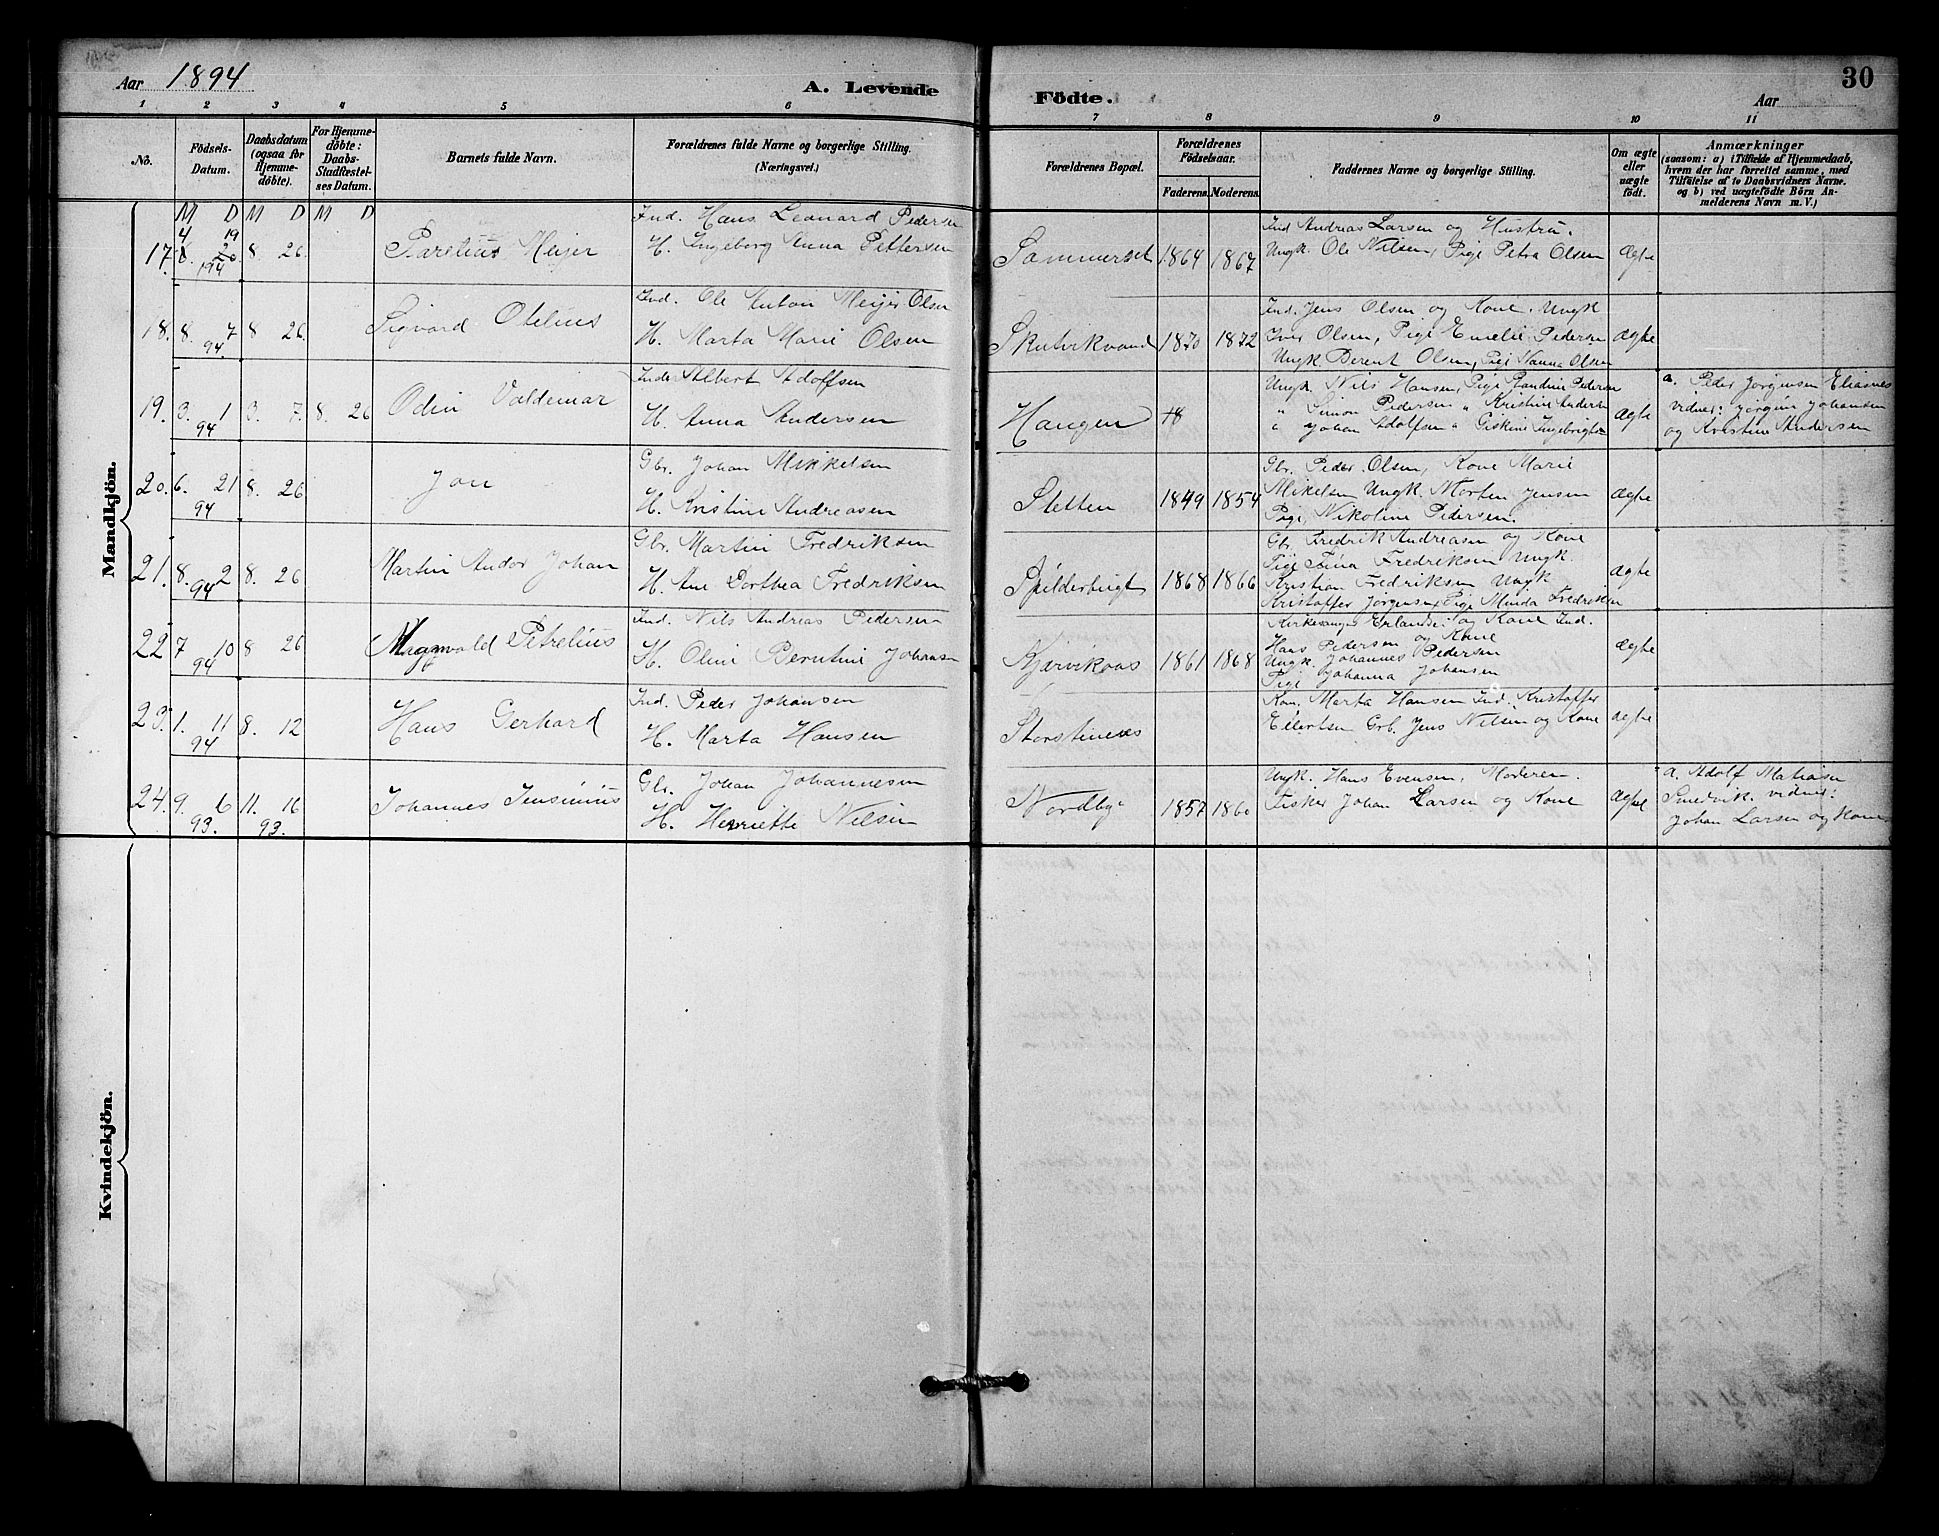 Aar 1894
A. Levende Födte.
30
Aar
1 2 3 4 5 6 7 8 9 10 11
No.
Födsels-Datum.
Daabsdatum (ogsaa for Hjemme-döbte).
For Hjemme-döbte: Daabs-Stadfæstel-ses Datum.
Barnets fulde Navn.
Forældrenes fulde Navne og borgerlige Stilling. (Næringsvei.)
Forældrenes Bopæl.
Forældrenes Födselsaar.
Faderens. Moderens.
Faddernes Navne og borgerlige Stilling.
Om ægte eller uægte födt.
Anmærkninger
(saasom: a) i Tilfælde af Hjemmedaab, hvem der har forrettet samme, med Tilföielse af to Daabsvidners Navne. og b) ved uægtefödte Börn An-melderens Navn m. V.)
Mandkjön.
M D M D M D
17. 4 19 194 8 26 Parelius Meijer
Ind. Hans Leonard Pedersen
H. Ingeborg Anna Pettersen
Sommerset 1864 1867
Ind Andreas Larsen og Hustru.
Ungk. Ole Nilsen, Pige Petra Olsen
Ægte
18. 8. 7 94. 8 26. Sigvard Otelius
Ind. Ole Anton Meijer Olsen
H. Marta Marie Olsen
Skutvikvand 1870 1872
Ind. Jens Olsen og Kone. Ungk
Iver Olsen, Pige Emelie Pedersen
Ungk. Berent Olsen, Pige Hanna Olsen
ægte
19. 3. 1 94 3. 7. 8. 26 Odin Valdemar
Inder Albert Adolfsen
H. Anna Andersen
Haugen 18
Ungk. Nils Hansen, Pige Randine Pedersen
" Simon Pedersen " Kristine Andersen
" Johan Adolfsen " Giskine Ingebrigtsen
ægte
a. Peder Jörgensen Eliasnes
vidner: Jörgen Johansen
og Kristine Andersen
20. 6. 21 94 8. 26 Jon
Gbr. Johan Mikkelsen
H. Kristine Andreasen
Sletten 1849 1854
Gbr. Peder Olsen, Kone Marie
Mikelsen Ungk. Morten Jensen
Pige, Nikoline Pedersen.
ægte
21. 8. 2 94 8. 26 Martin Andor Johan
Gbr. Martin Fredriksen
H. Ane Dorthea Fredriksen
Spilderbugt 1868 1866
Gbr Fredrik Andreasen og Kone
Pige Tina Fredriksen Ungk.
Kristian Fredriksen Ungk
Kristoffer Jörgensen, Pige Minda Fredriksen
ægte
22 7 10 94 8 26 Magnvald Petrelius
Ind. Nils Andreas Pedersen
H. Oline Berntine Johansen
Kjervikaas 1861 1868
Kirkesanger Erlandsen og Kone Ind.
Hans Pedersen og Kone
Ungk. Johannes Pedersen
Pige Johanna Johansen
ægte
23. 1. 11 94 8. 12 Hans Gerhard
Ind. Peder Johansen
H. Marta Hansen
Storstinexs
Kon. Marta Hansen Ind. Kristoffer
Eilertsen Grb. Jens Nilsen og Kone
ægte
24. 9. 6 93. 11. 16 93. Johannes Jensinius
Gbr. Johan Johannesen
H. Henriette Nilsen
Nordby 1857 1860
Ungk. Hans Evensen, Moderen.
Fisker Johan Larsen og Kone
ægte
a. Adolf Matiasen
Smedvik. vidner:
Johan Larsen og Kone
Kvindekjön.